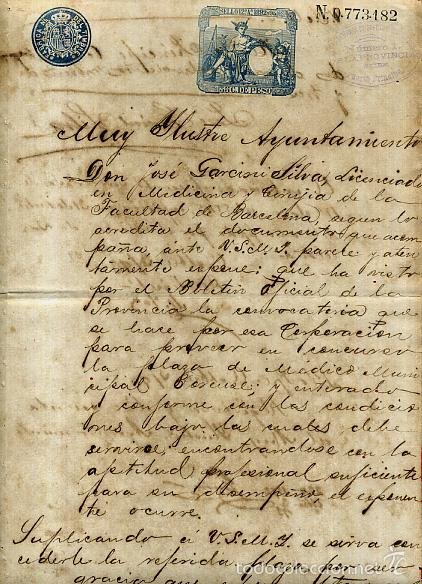 N. 0.773.482
35 C. DE PESO
Muy Ilustre Ayuntamiento
Don José Garcini Silva, Licenciado
en Medicina y Cirujia de la
Facultad de Barcelona, segun lo
acredita el documento que acom
paña, ante V.S.M.I. parece y aten
tamente expone: que ha visto
por el Boletin oficial de la
Provincia la convocatoria que
se hace por esa Corporación
para proveer en concurso
la plaza de Medico Muni
cipal Forense; y enterado
y conforme con las condicio
nes bajo las cuales debe
servirse, encontrandose con la
aptitud profesional suficiente
para su desempeño el exponen
te ocurre
Suplicando a V.S.M.I. se sirva con
cederle la referida plaza por ser
gracia que
todocoleccion